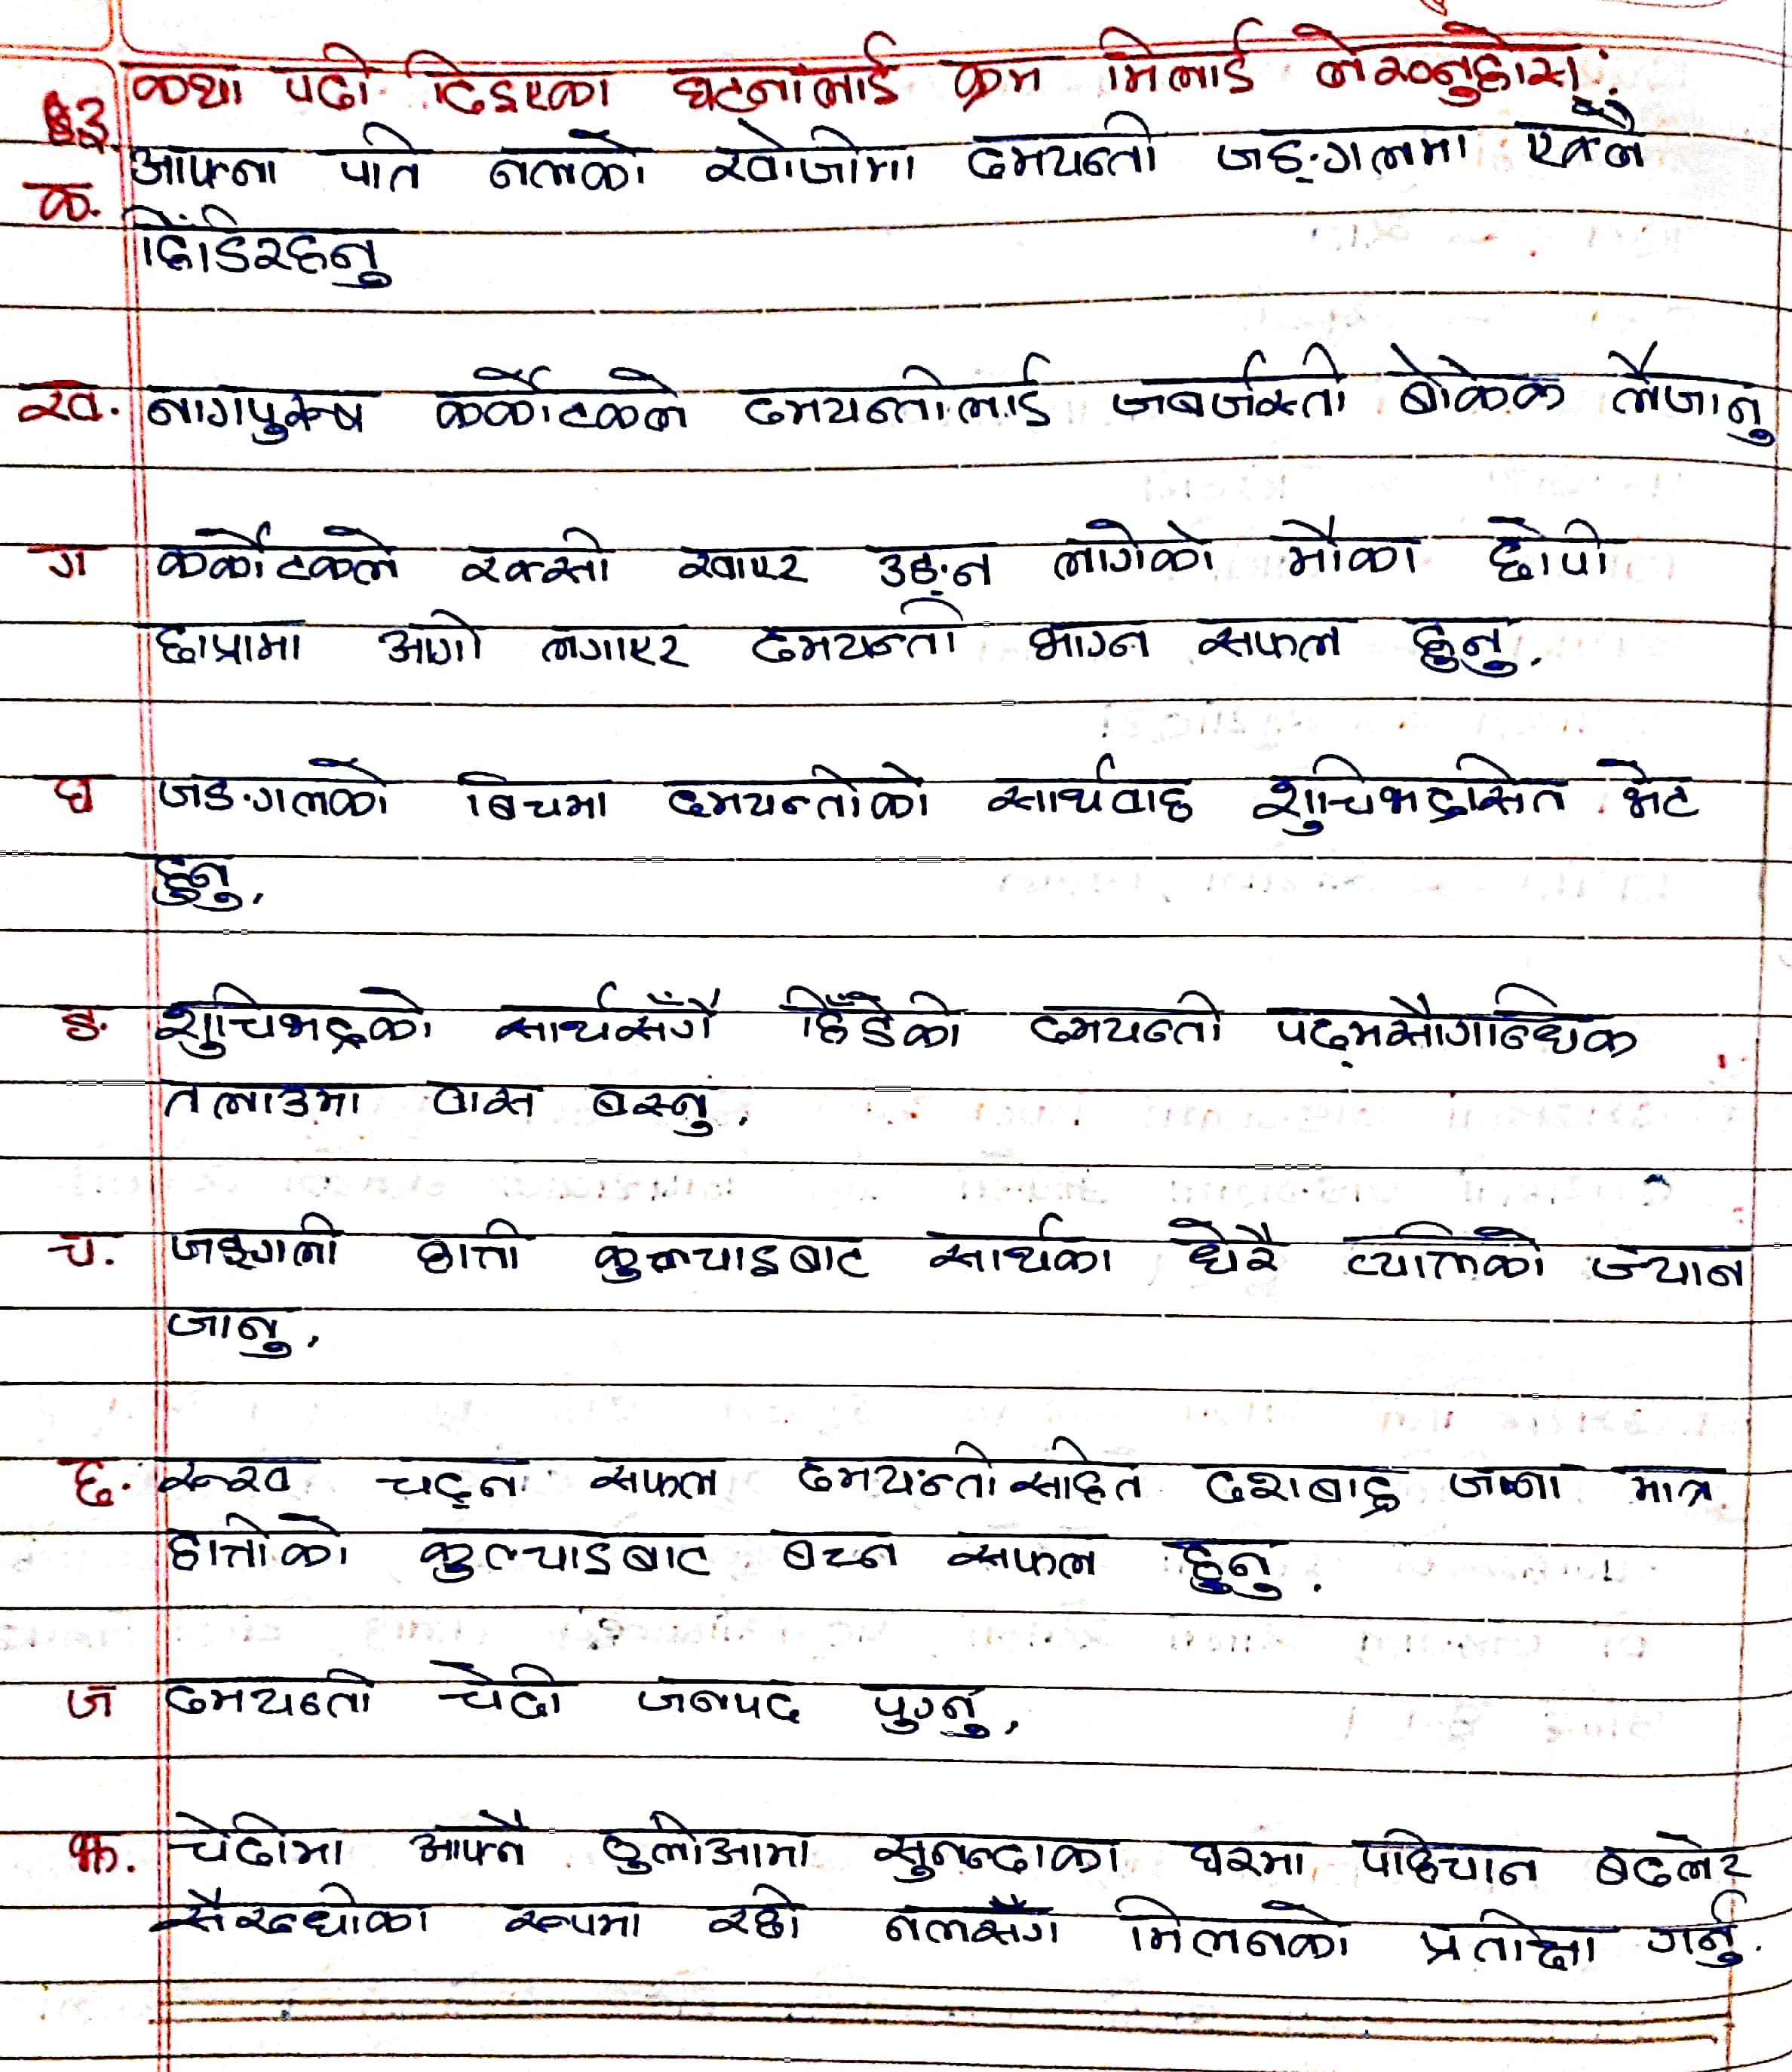 ३ कथा पढी दिइएका घटनालाई क्रम मिलाई लेख्नुहोस् :
क. आफ्ना पति नलको खोजीमा दमयन्ती जङ्गलमा एक्लै
हिँडिरहनु
ख. नागपुरुष कर्कोटकले दमयन्तीलाई जबर्जस्ती बोकेक लैजानु
ग कर्कोटकले रक्सी खाएर उङ्न लागेको मौका छोपी
छाप्रामा आगो लगाएर दमयन्ती भाग्न सफल हुनु.
घ जङ्गलको बिचमा दमयन्तीको सार्थवाह शुचिभद्रसित भेट
हुनु.
ङ शुचिभद्रको सार्थसँगै हिँडेकी दमयन्ती पद्मसौगान्धिक
तलाउमा वास बस्नु.
च. जङ्गली हात्ती कुल्चाइबाट सार्थका धेरै व्यक्तिको ज्यान
जानु.
छ. रूख चढ्न सफल दमयन्तीसहित दशबाह्र जना मात्र
हात्तीको कुल्चाइबाट बच्न सफल हुनु.
ज दमयन्ती चेदी जनपद पुग्नु.
झ. चेदीमा आफ्नै ठुलीआमा सुनन्दाका घरमा पहिचान बदलेर
सैरन्ध्रीका रूपमा रही नलसँग मिलनको प्रतीक्षा गर्नु.